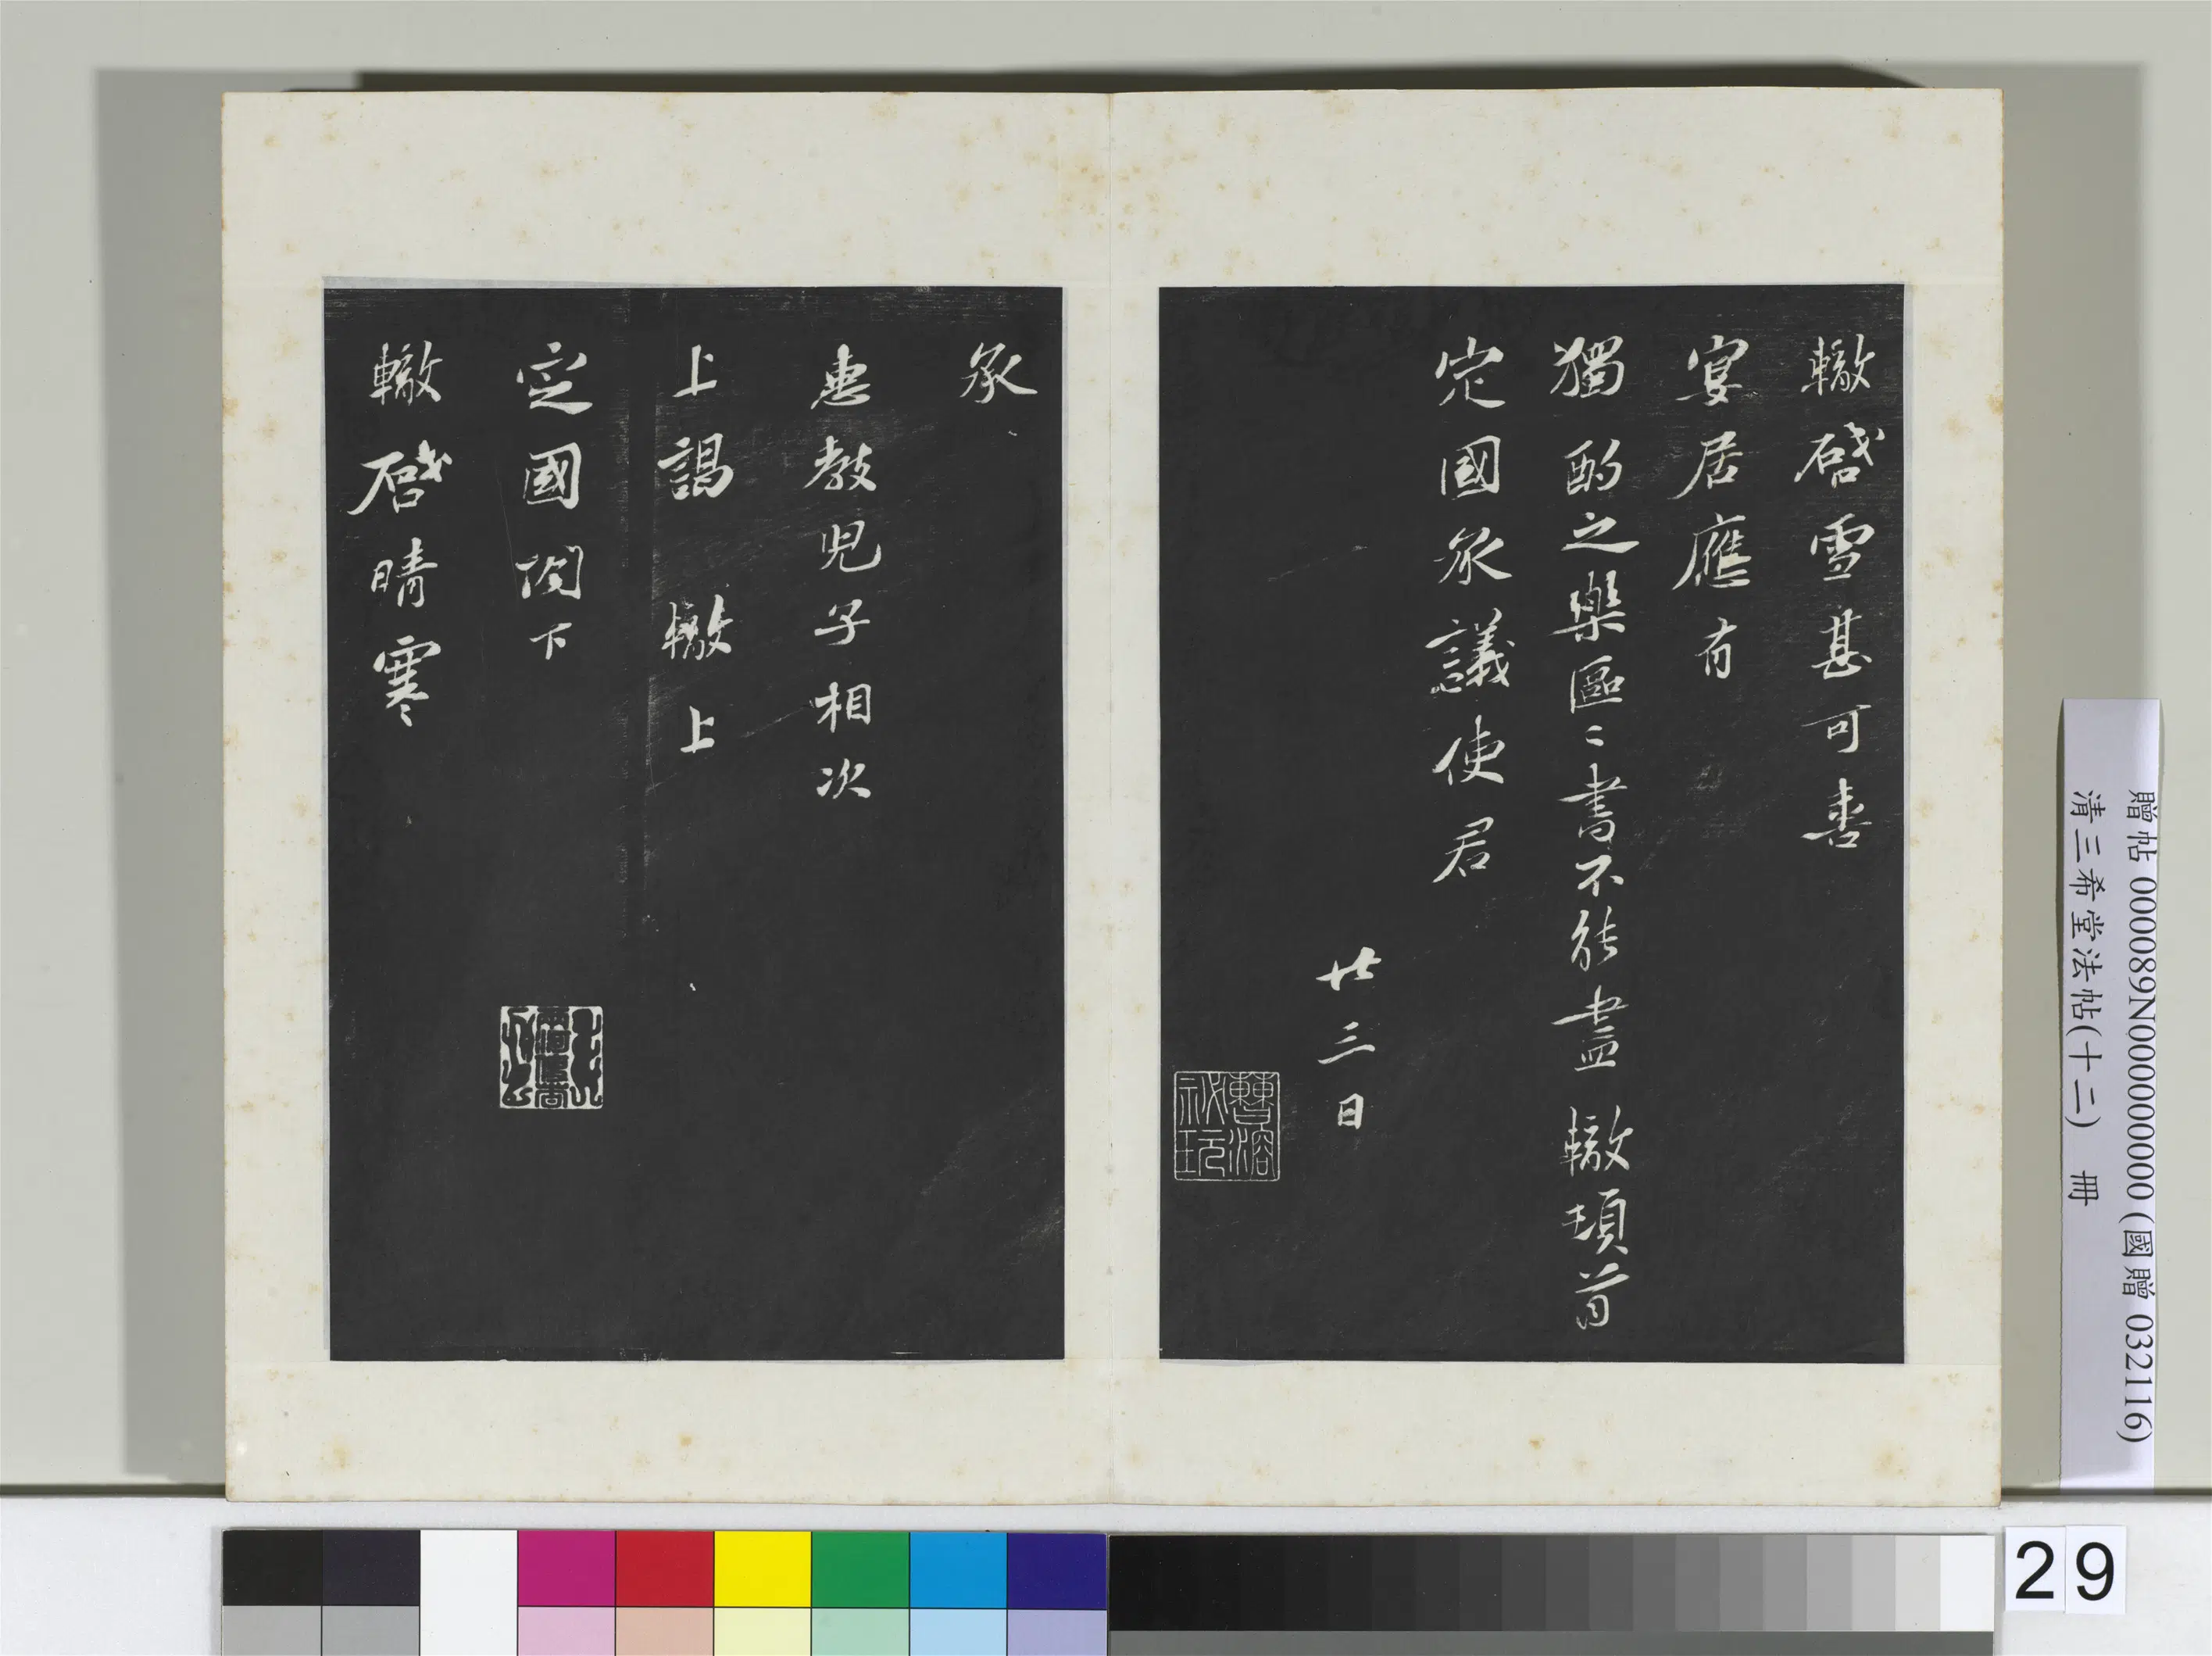 轍啓雪甚可喜
宴居應有
獨酌之樂區〻書不能盡 轍頓首
定國承議使君
廿三日
曹溶祕玩
承
惠教兒子相次
上謁 轍上
定國閤下
轍啓晴寒
贈帖 000089N000000000 (國贈 032116)
清三希堂法帖(十二) 冊
29